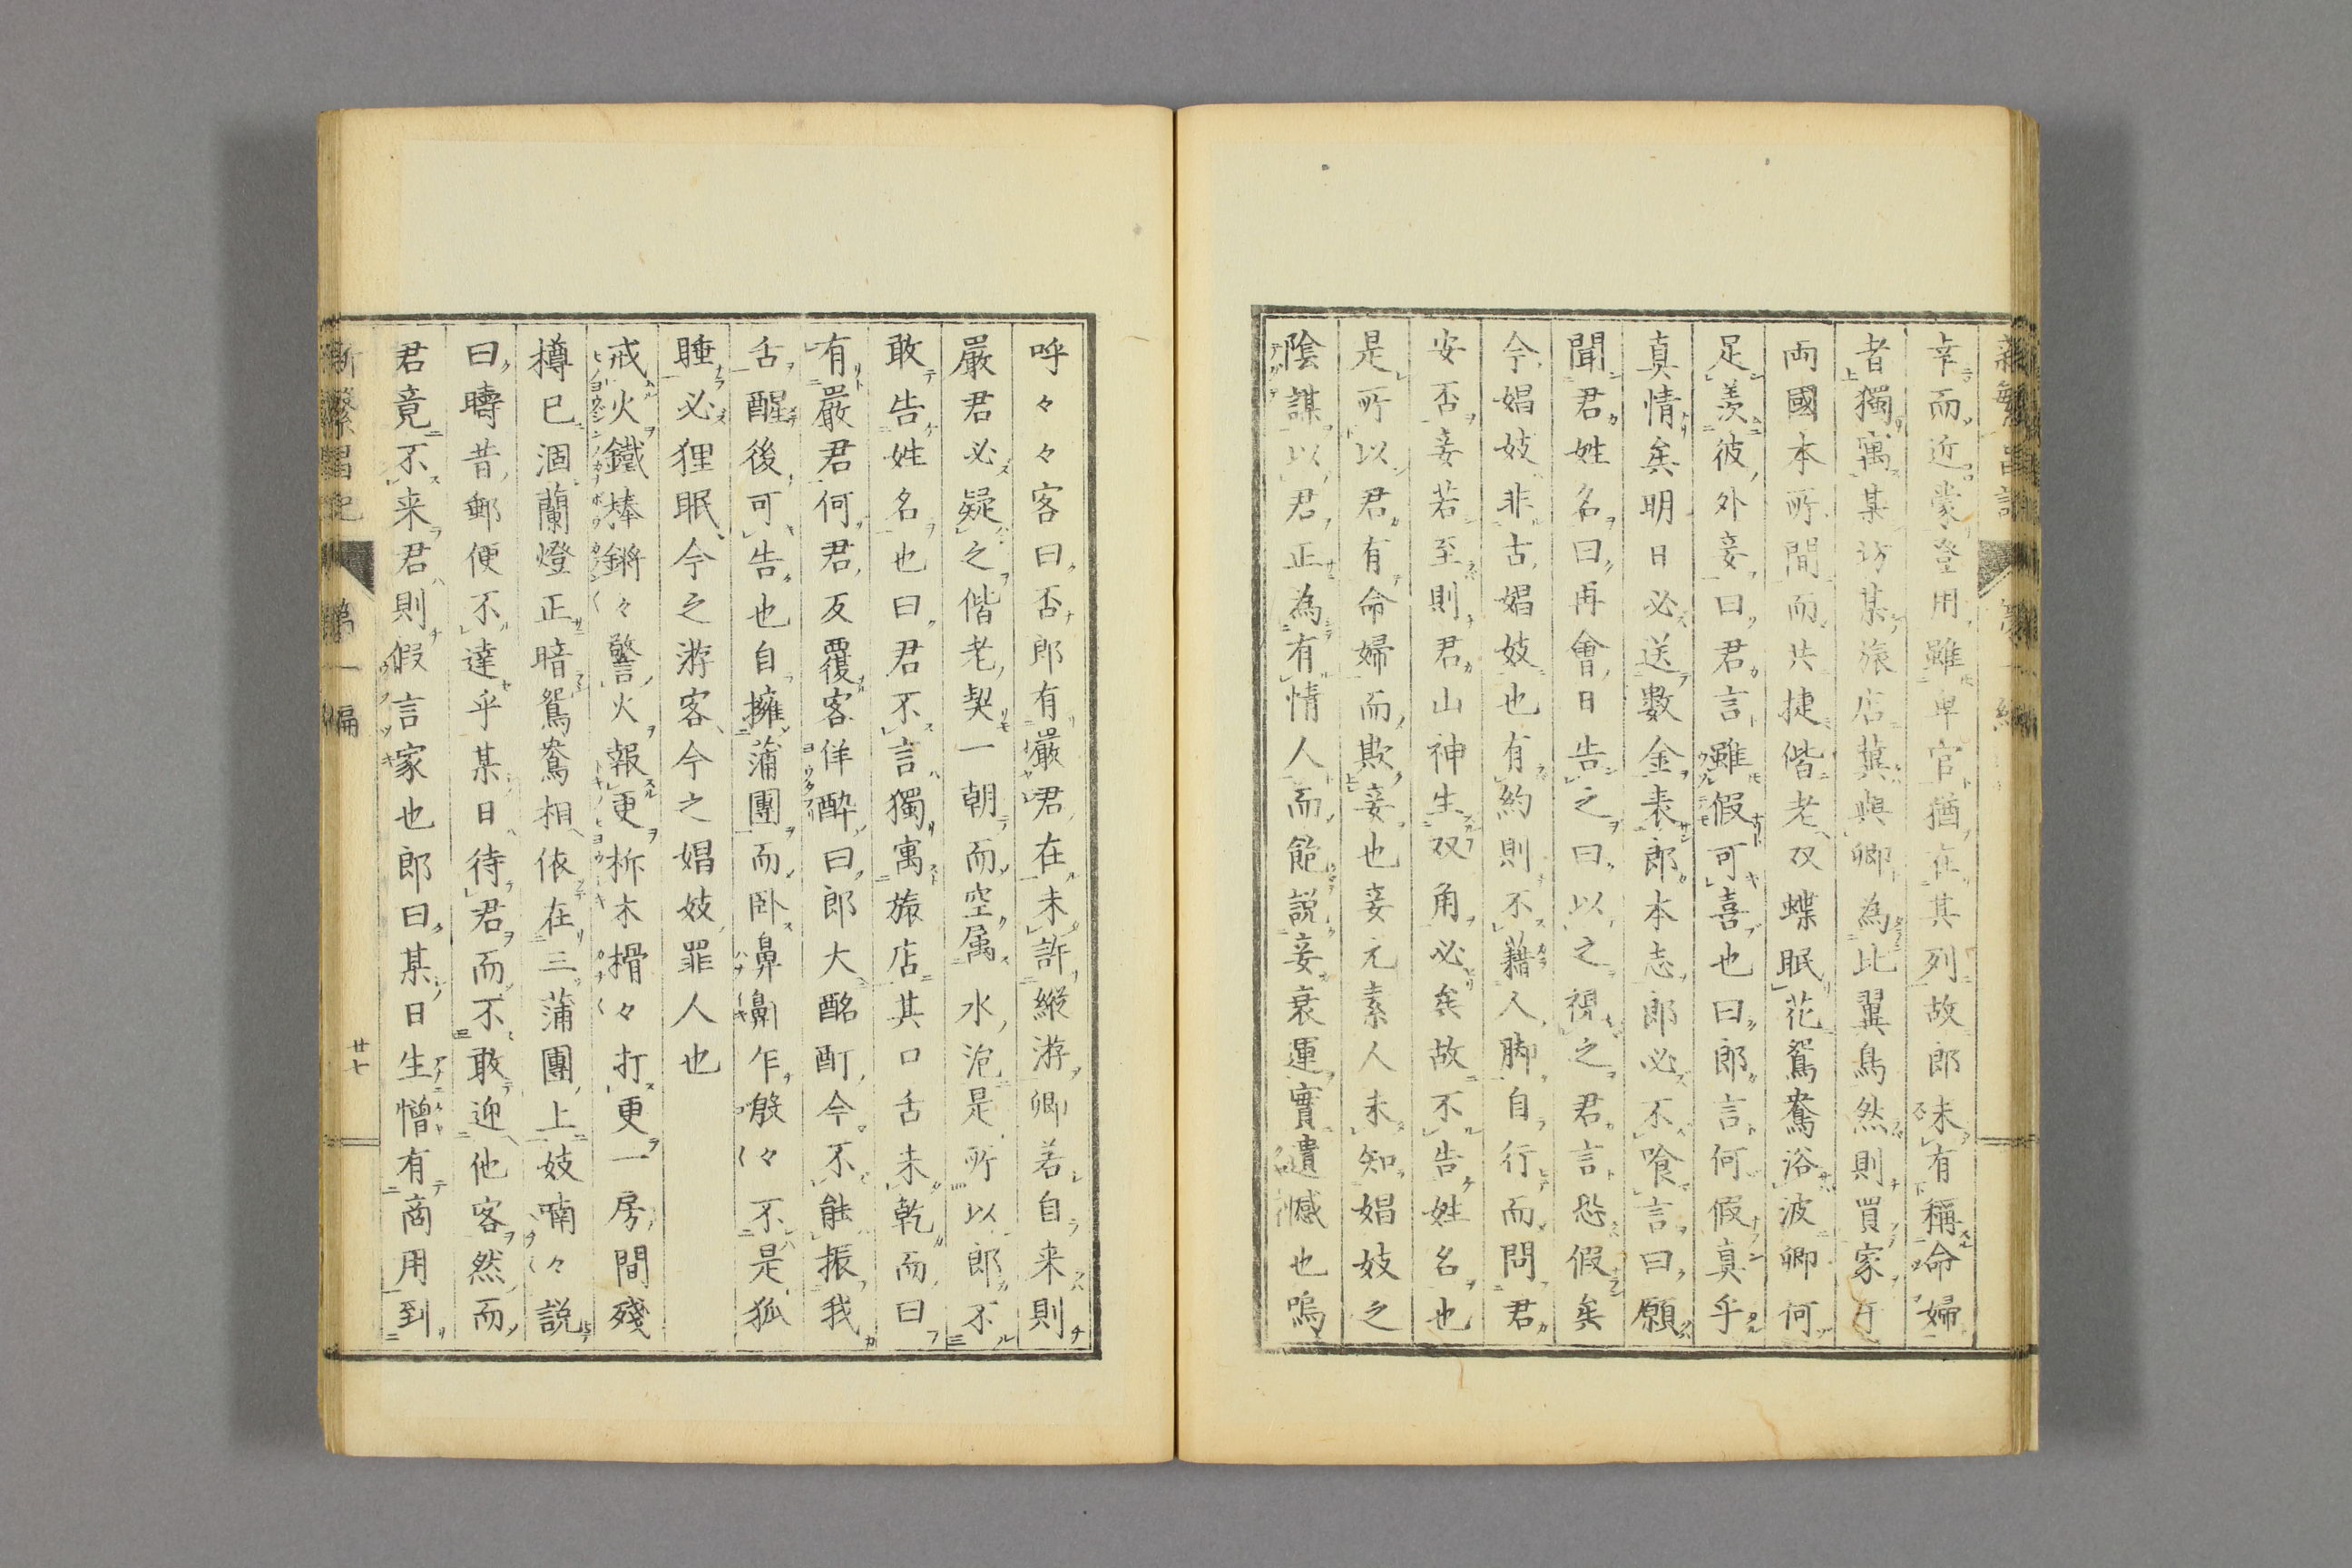 幸而近蒙登用雖卑官猶在其列故郎未有稱命婦
者獨寓某坊某旅店冀與卿為比翼鳥然則買家于
両國本所間而共捷偕老双蝶眠花鴛鴦浴波卿何
足羨彼外妾曰君言雖假可喜也曰郎言何假真乎
真情矣明日必送數金表郎本志郎必不喰言曰願
聞君姓名曰再會日告之曰以之視之君言恐假矣
今娼妓非古娼妓也有約則不藉人脚自行而問君
安否妾若至則君山神生双角必矣故不告姓名也
是所以君有命婦而欺妾也妾元素人未知娼妓之
陰謀以君正為有情人而飽説妾衰運實遺憾也嗚
呼々々客曰否郎有嚴君在未許縦游卿若自来則
嚴君必疑之偕老契一朝而空属水泡是所以郎不
敢告姓名也曰君不言獨寓旅店其口舌未乾而曰
有嚴君何君反覆客佯酔曰郎大酩酊今不能振我
舌醒後可告也自擁蒲團而卧鼻鼾乍殷々不是狐
睡必狸眠今之游客今之娼妓罪人也
戒火鐵捧鏘々警火報更柝木榾々打更一房間殘
樽已涸蘭燈正暗鴛鴦相依在三蒲團上妓喃々説
曰疇昔郵便不達乎某日待君而不敢迎他客然而
君竟不来君則假言家也郎曰某日生憎有商用到
新繁昌記 第一編 廿七